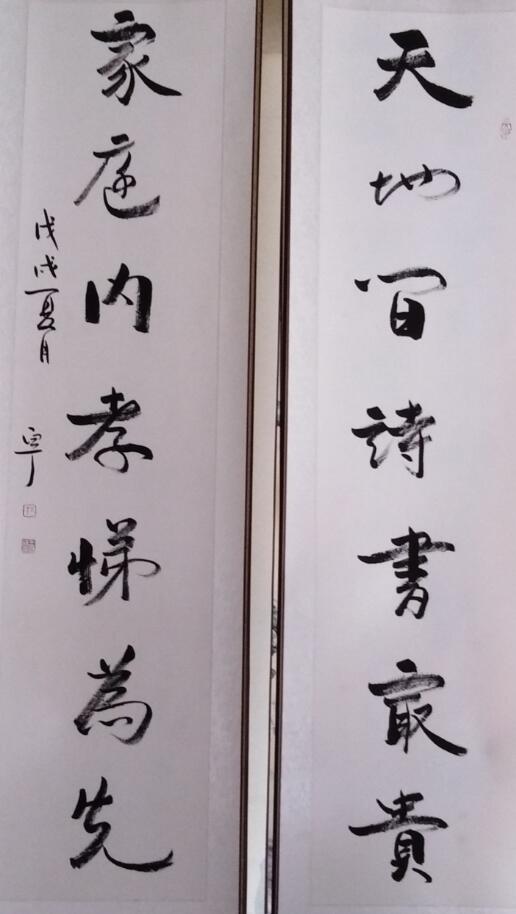 天地间詩書最貴
家庭内孝悌為先
戊戌夏月